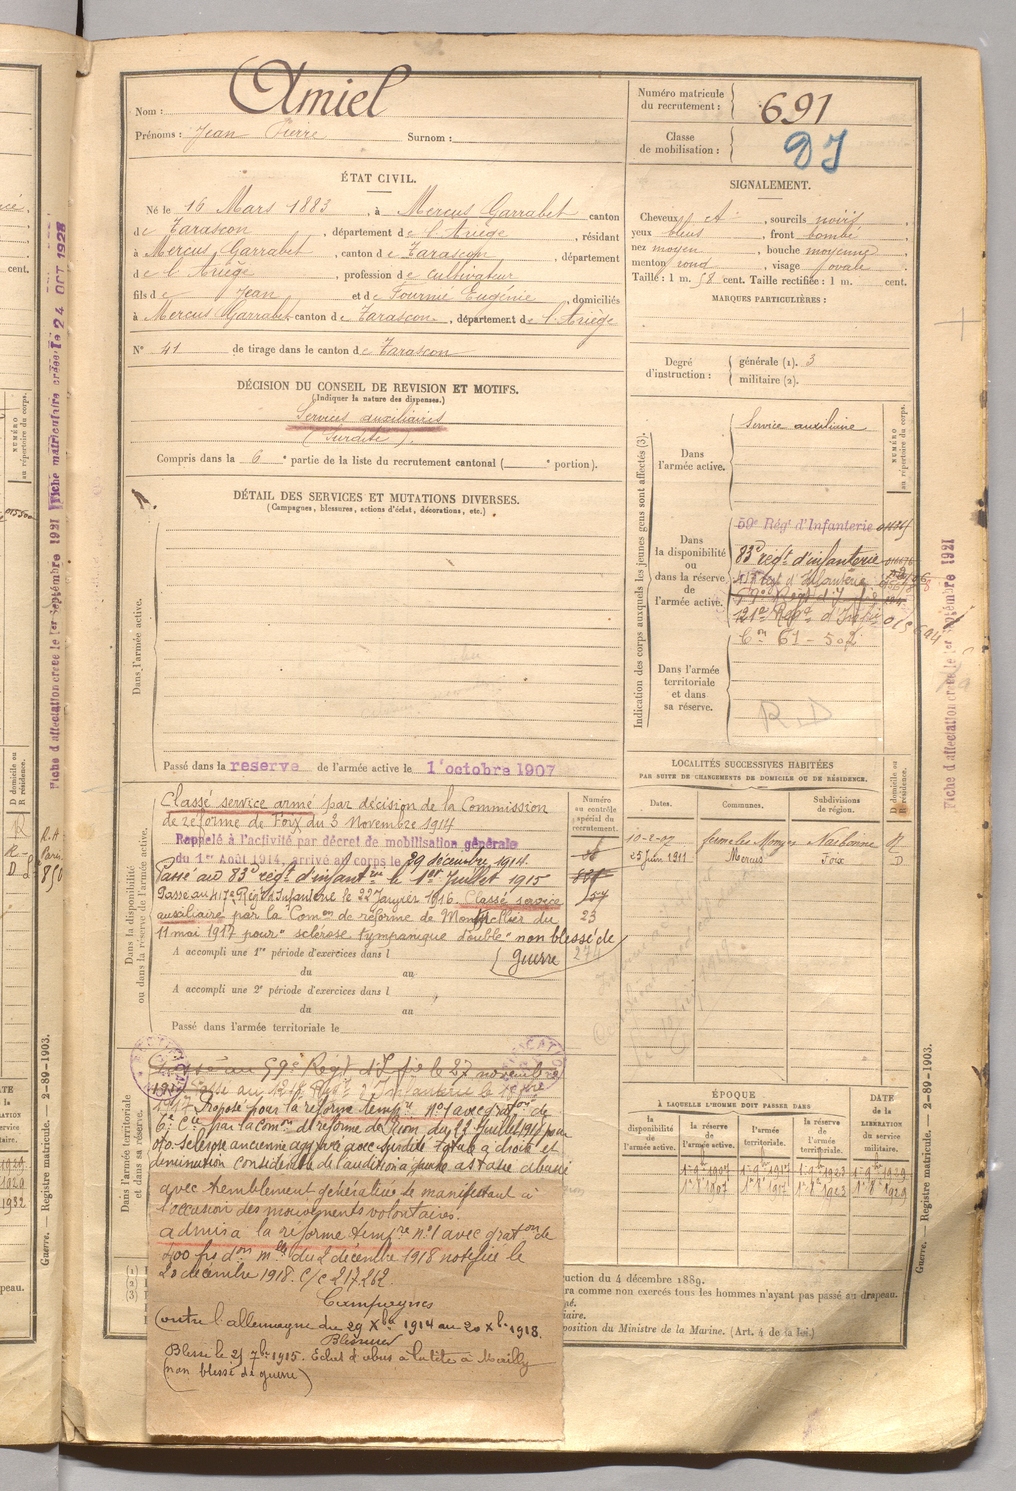 Nom : Amiel
Prénoms : Jean Pierre Surnom :
Numéro matricule du recrutement : 691
Classe de mobilisation :
ÉTAT CIVIL.
Né le 16 Mars 1883, à Mercus Garrabet canton
de Tarascon, département de l'Ariège, résidant
à Mercus Garrabet, canton de Tarascon, département
de l'Ariège, profession de cultivateur
fils de Jean et de Fournié Eugénie, domiciliés
à Mercus Garrabet canton de Tarascon, département de l'Ariège
N° 41 de tirage dans le canton de Tarascon
SIGNALEMENT.
Cheveux , sourcils noirs,
yeux bleus, front bombé,
nez moyen, bouche moyenne
menton rond, visage ovale
Taille : 1 m. 58 cent. Taille rectifiée : 1 m. cent.
MARQUES PARTICULIÈRES :
Degré d'instruction : générale (1). 3
militaire (2).
DÉCISION DU CONSEIL DE REVISION ET MOTIFS.
(Indiquer la nature des dispenses.)
Services auxiliaires
(Surdité).
Compris dans la 6e partie de la liste du recrutement cantonal ( e portion).
DÉTAIL DES SERVICES ET MUTATIONS DIVERSES.
(Campagnes, blessures, actions d'éclat, décorations, etc.)
Dans l'armée active.
Passé dans la reserve de l'armée active le 1er octobre 1907
Indication des corps auxquels les jeunes gens sont affectés (3).
NUMÉRO au répertoire du corps.
Dans l'armée active.
Service auxiliaire
Dans la disponibilité ou dans la réserve de l'armée active.
59e Régt d'Infanterie
83e régt d'infanterie
417 Régt d'Infanterie
121e Régt d'Infie
Con 61-502
Dans l'armée territoriale et dans sa réserve.
R.D
LOCALITÉS SUCCESSIVES HABITÉES
PAR SUITE DE CHANGEMENTS DE DOMICILE OU DE RÉSIDENCE.
Dates. Communes. Subdivisions de région. D domicile ou R résidence.
10-2-07 Narbonne R
25 juin 1911 Mercus Foix D
Dans la disponibilité ou dans la réserve de l'armée active.
Numéro au contrôle spécial du recrutement.
Classé service armé par décision de la Commission
de réforme de Foix du 3 novembre 1914
Rappelé à l'activité par décret de mobilisation générale
du 1er Août 1914, arrivé au corps le 29 décembre 1914.
Passé au 83e régt d'infantrie le 1er Juillet 1915
Passé au 417e Régt Infanterie le 22 Janvier 1916. Classé service
auxiliaire par la Comon de réforme de Montpellier du
11 mai 1917 pour "sclérose tympanique double" non blessé de
guerre
157
23
274
A accompli une 1re période d'exercices dans l
du au
A accompli une 2e période d'exercices dans l
du au
Passé dans l'armée territoriale le
Dans l'armée territoriale et dans sa réserve.
Passé au 59e Régt d'Infie le 27 novembre
Passé au 121e Régt d'Infanterie le
1917. Proposé pour la réforme tempre n°1 avec graton de
6e Cie par la Comon de réforme de Riom du 22 Juillet 1918 pour
oto-sclérose ancienne aggravée avec surdité totale à droite et
diminution considérable de l'audition à gauche, astasie abasie
avec tremblement généralisé se manifestant à
l'occasion des mouvements volontaires.
admis à la réforme tempre n°1 avec graton de
don mlle du 2 décembre 1918 notifiée le
20 décembre 1918. C/C 217.262.
Campagnes
Contre l'allemagne du 29 Xbre 1914 au 20 Xbre 1918.
Blessures
Blessé le 25 7bre 1915. Eclat d'obus à la tête à Mailly
(non blessé de guerre)
ÉPOQUE
À LAQUELLE L'HOMME DOIT PASSER DANS
la disponibilité de l'armée active. la réserve de l'armée active. l'armée territoriale. la réserve de l'armée territoriale.
DATE de la LIBÉRATION du service militaire.
1er 8bre 1907 1er 8bre 1923 1er 8bre 1929
ction du 4 décembre 1889.
ra comme non exercés tous les hommes n'ayant pas passé au drapeau.
position du Ministre de la Marine. (Art. 4 de la loi.)
Fiche d'affectation créée le 1er Septembre 1921
Guerre. — Registre matricule. — 2-89-1903.
Fiche d'affectation créée le 1er Septembre 1921
Fiche matriculaire créée le 24 OCT 1928
Guerre. — Registre matricule. — 2-89-1903.